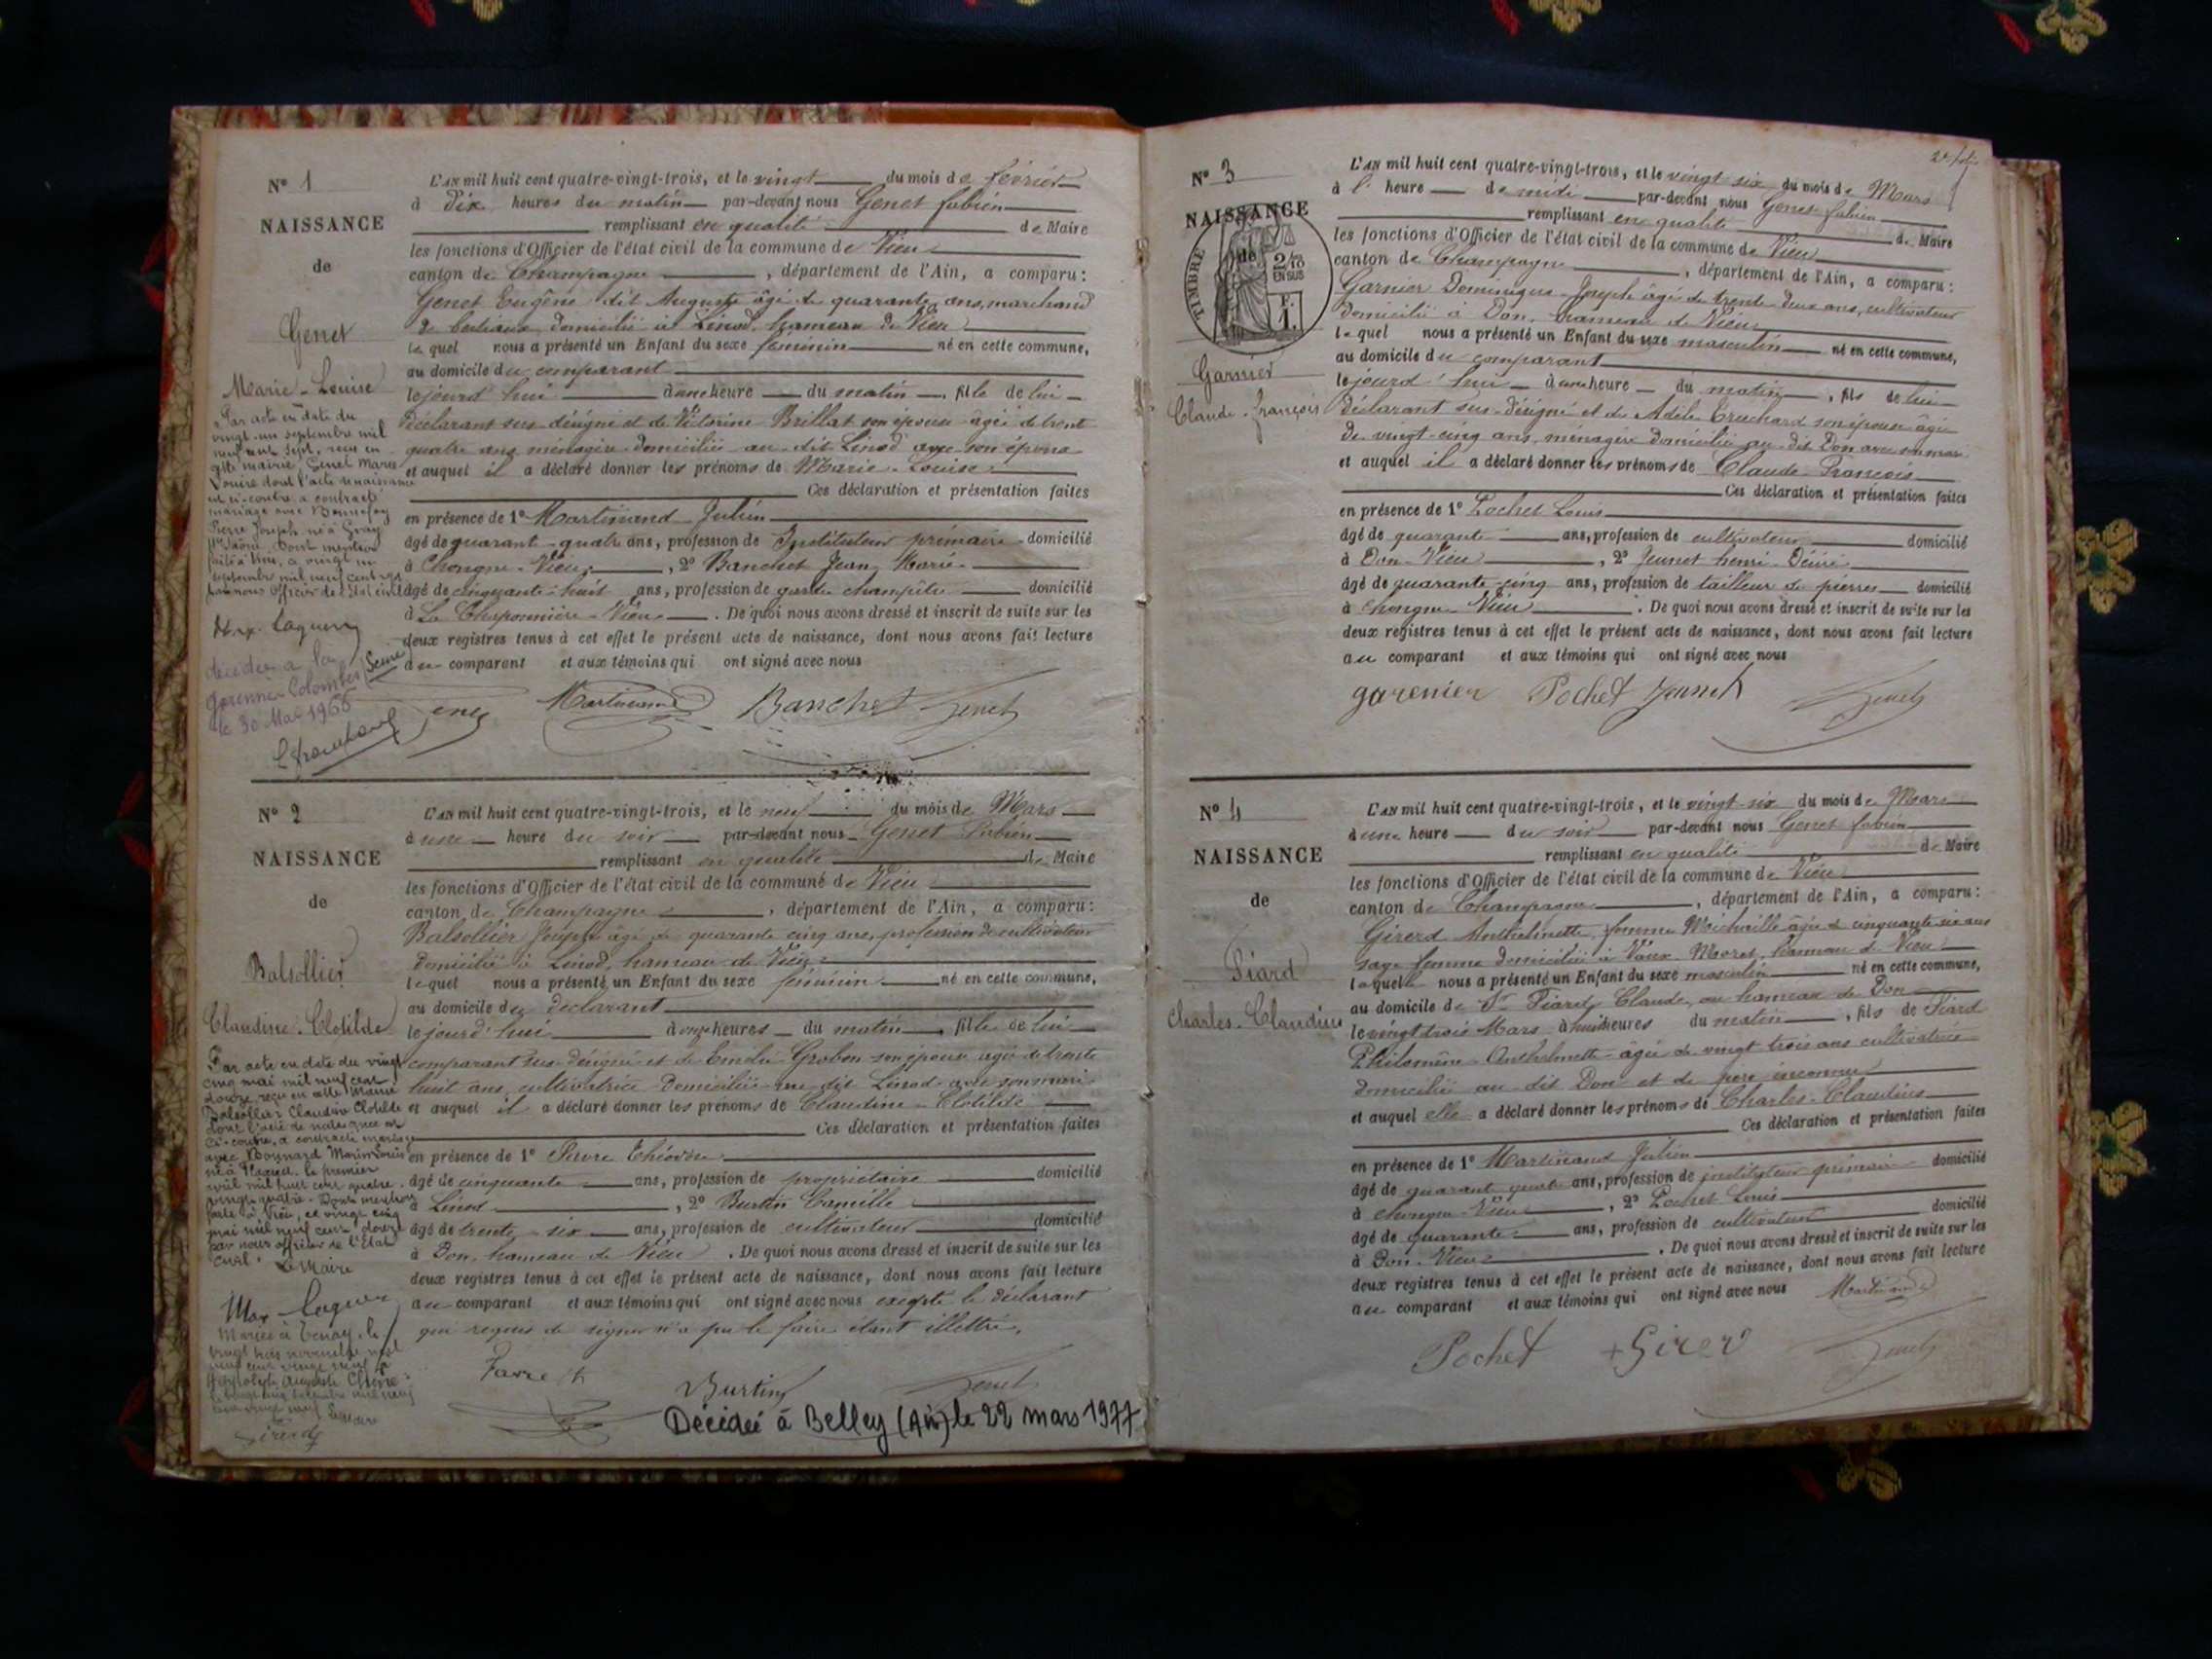 N° 1
NAISSANCE
de
Genet
Marie-Louise
Par acte en date du
vingt-un septembre mil
neuf cent sept, reçu en
Genet Marie
Louise dont l'acte de naissance
est ci-contre a contracté
mariage avec Bonnefoy
Pierre Joseph né à Gray
Hte Saône. Dont mention
faite à Vieu, le vingt un
septembre mil neuf cent sept
par nous Officier de l'Etat civil
décédée à la
Garenne Colombes (Seine)
le 30 Mai 1965
L'AN mil huit cent quatre-vingt-trois, et le vingt du mois de février
à dix heures du matin par-devant nous Genet fabien
remplissant en qualité de Maire
les fonctions d'Officier de l'état civil de la commune de Vieu
canton de Champagne, département de l'Ain, a comparu:
Genet Eugène dit Auguste âgé de quarante ans, marchand
de bestiaux domicilié à Linod, hameau de Vieu
lequel nous a présenté un Enfant du sexe féminin né en cette commune,
au domicile du comparant
le jourd'hui à une heure du matin, fille de lui
déclarant sus désigné et de Victorine Brillat son épouse âgée de trente
quatre ans ménagère domiciliée au dit Linod avec son époux
et auquel il a déclaré donner les prénoms de Marie-Louise
Ces déclaration et présentation faites
en présence de 1° Martinand Julien
âgé de quarant-quatre ans, profession de Instituteur primaire domicilié
à Chongne-Vieu, 2° Banchet Jean Marie
âgé de cinquante-huit ans, profession de garde champêtre domicilié
à La Chaponnière-Vieu. De quoi nous avons dressé et inscrit de suite sur les
deux registres tenus à cet effet le présent acte de naissance, dont nous avons fait lecture
au comparant et aux témoins qui ont signé avec nous
Genet Martinand Banchet Genet
N° 2
NAISSANCE
de
Balsollier
Claudine-Clotilde
Par acte en date du vingt
cinq mai mil neuf cent
douze reçu en cette Mairie
Balsollier Claudine Clotilde
dont l'acte de naissance est
ci-contre, a contracté mariage
avec
né à le premier
mil huit cent quatre
vingt quatre. Dont mention
faite à Vieu, le vingt cinq
mai mil neuf cent douze
par nous officier de l'Etat
civil. Le Maire
Mariée à Tenay le
vingt trois novembre mil
neuf cent vingt neuf à
L'AN mil huit cent quatre-vingt-trois, et le neuf du mois de Mars
à une heure du soir par-devant nous Genet Fabien
remplissant en qualité de Maire
les fonctions d'Officier de l'état civil de la commune de Vieu
canton de Champagne, département de l'Ain, a comparu:
Balsollier Joseph âgé de quarante cinq ans, profession de cultivateur
domicilié à Linod, hameau de Vieu
lequel nous a présenté un Enfant du sexe féminin né en cette commune,
au domicile du declarant
le jourd'hui à onze heures du matin, fille de lui
comparant sus désigné et de Emélie Grobon son épouse âgée de trente
huit ans, cultivatrice domiciliée au dit Linod avec son mari
et auquel il a déclaré donner les prénoms de Claudine-Clotilde
Ces déclaration et présentation faites
en présence de 1° Favre Théodore
âgé de cinquante ans, profession de propriétaire domicilié
à Linod, 2° Burtin Camille
âgé de trente-six ans, profession de cultivateur domicilié
à Don, hameau de Vieu. De quoi nous avons dressé et inscrit de suite sur les
deux registres tenus à cet effet le présent acte de naissance, dont nous avons fait lecture
au comparant et aux témoins qui ont signé avec nous excepté le déclarant
qui requis de signer n'a pu le faire étant illettré.
Favre th Burtin Genet
Décédée à Belley (Ain) le 22 mars 1977
2e folio
N° 3
NAISSANCE
de
TIMBRE
2/10
EN SUS
F.
1.
Garnier
Claude-françois
L'AN mil huit cent quatre-vingt-trois, et le vingt six du mois de Mars
à l'heure de midi par-devant nous Genet fabien
remplissant en qualité de Maire
les fonctions d'Officier de l'état civil de la commune de Vieu
canton de Champagne, département de l'Ain, a comparu:
Garnier Dominique-Joseph âgé de trente-deux ans, cultivateur
domicilié à Don, hameau de Vieu
lequel nous a présenté un Enfant du sexe masculin né en cette commune,
au domicile du comparant
le jourd'hui à une heure du matin, fils de lui
déclarant sus-désigné et de Adèle Cruchard son épouse âgée
de vingt-cinq ans, ménagère domiciliée au dit Don avec son mari
et auquel il a déclaré donner les prénoms de Claude-François
Ces déclaration et présentation faites
en présence de 1° Pochet Louis
âgé de quarante ans, profession de cultivateur domicilié
à Don-Vieu, 2° Jeunet henri-Désiré
âgé de quarante-cinq ans, profession de tailleur de pierres domicilié
à Chongne-Vieu. De quoi nous avons dressé et inscrit de suite sur les
deux registres tenus à cet effet le présent acte de naissance, dont nous avons fait lecture
au comparant et aux témoins qui ont signé avec nous
garenier Pochet Jeunet Genet
N° 4
NAISSANCE
de
Piard
Charles-Claudius
L'AN mil huit cent quatre-vingt-trois, et le vingt-six du mois de Mars
à une heure du soir par-devant nous Genet fabien
remplissant en qualité de Maire
les fonctions d'Officier de l'état civil de la commune de Vieu
canton de Champagne, département de l'Ain, a comparu:
Girerd Anthelmette, femme Michaille âgée de cinquante six ans
sage femme domiciliée à Vaux-Moret, hameau de Vieu
laquelle nous a présenté un Enfant du sexe masculin né en cette commune,
au domicile de Sr Piard, Claude, au hameau de Don
le vingt trois Mars à huit heures du matin, fils de Piard
Philomène-Anthelmette âgée de vingt trois ans cultivatrice
domiciliée au dit Don et de père inconnu
et auquel elle a déclaré donner les prénoms de Charles-Claudius
Ces déclaration et présentation faites
en présence de 1° Martinand Julien
âgé de quarant quatre ans, profession de instituteur primaire domicilié
à Chongne-Vieu, 2° Pochet Louis
âgé de quarante ans, profession de cultivateur domicilié
à Don-Vieu. De quoi nous avons dressé et inscrit de suite sur les
deux registres tenus à cet effet le présent acte de naissance, dont nous avons fait lecture
au comparant et aux témoins qui ont signé avec nous Martinand
Pochet Girerd Genet